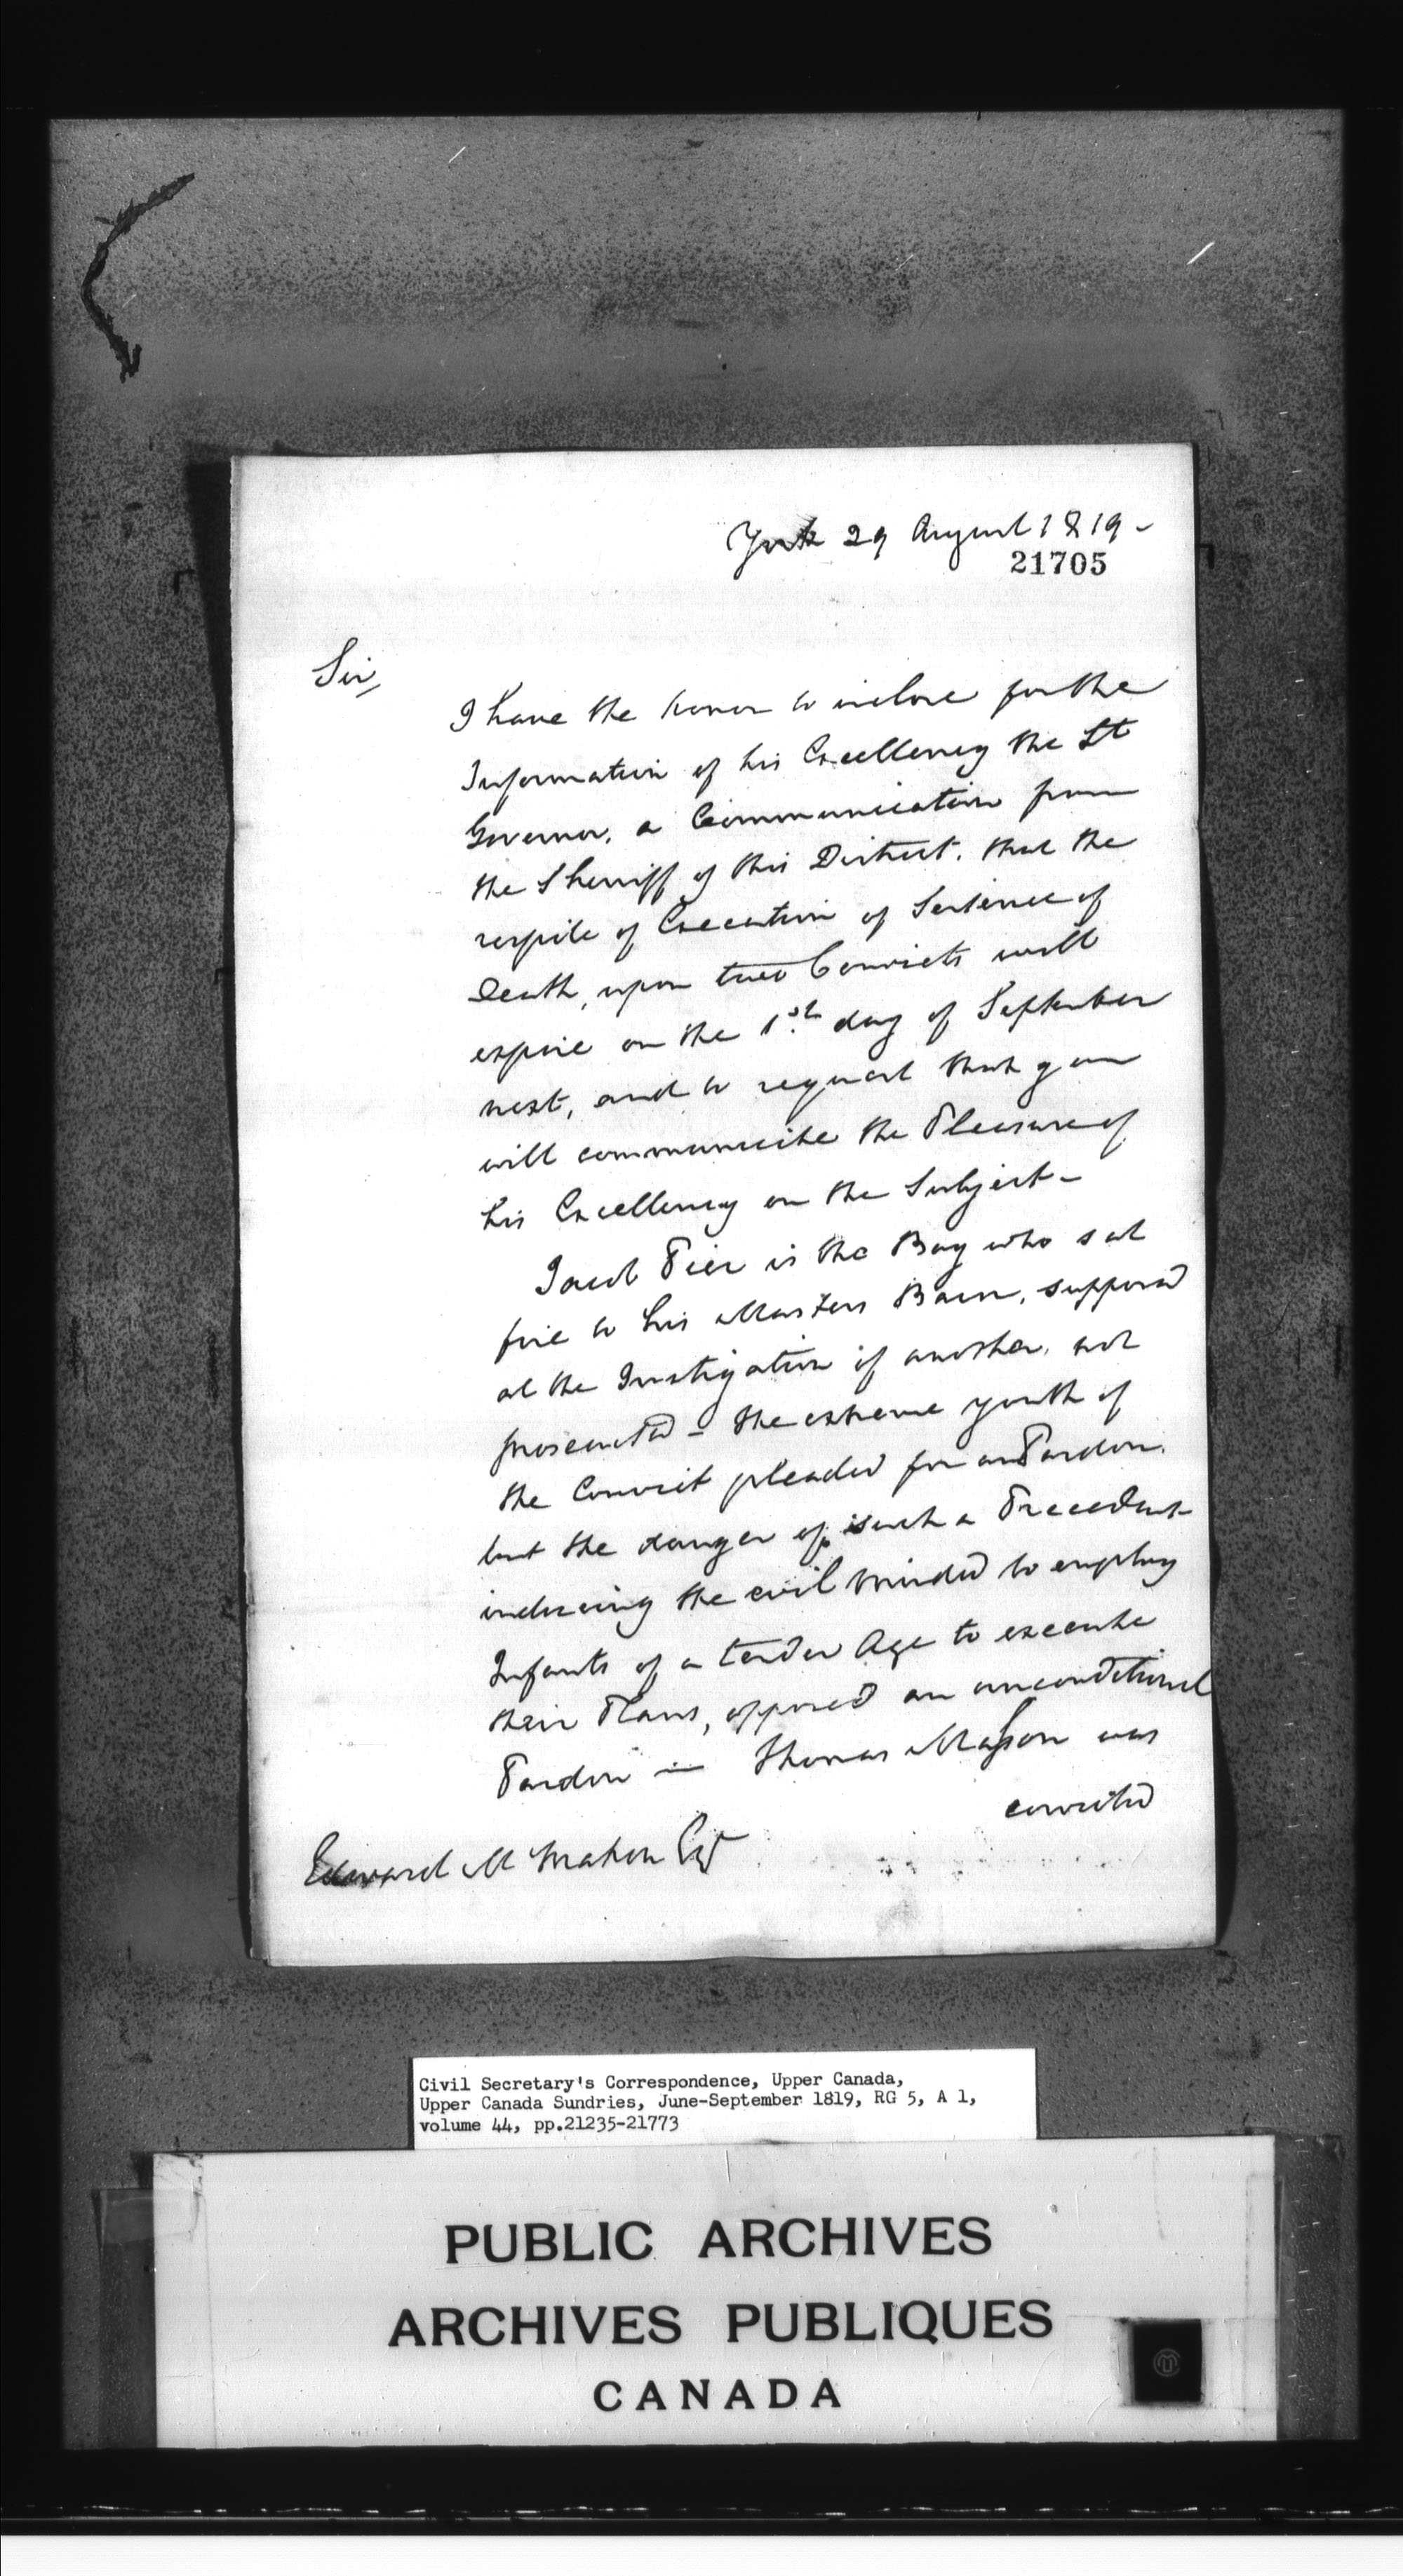 York 29 August 1819 -
21705
Sir,
I have the honor to inclose for the
Information of his Excellency the Lt
Governor, a Communication from
the Sherriff of this District, that the
respite of Execution of Sentence of
Death, upon two Convicts will
expire on the 1st day of September
next, and to request that you
will communicate the Pleasure of
his Excellency on the Subject -
Jacob Peer is the Boy who sat
fire to his Masters Barn, supposed
at the Instigation of another, not
prosecuted - the extreme youth of
the Convict pleaded for a Pardon.
but the danger of such a Precedent
inducing the evil minded to employ
Infants of a tender Age to execute
their Plans, opposed an unconditional
Pardon - Thomas Mason was
convicted
Edward McMahon Esqr
Civil Secretary's Correspondence, Upper Canada,
Upper Canada Sundries, June-September 1819, RG 5, A 1,
volume 44, pp.21235-21773
PUBLIC ARCHIVES
ARCHIVES PUBLIQUES
CANADA